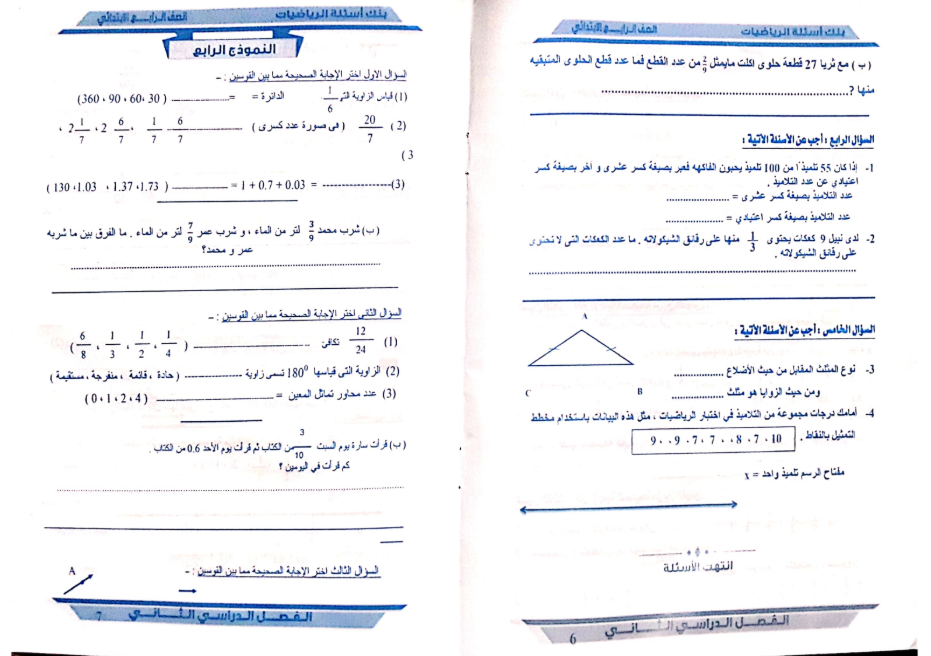 بنك أسئلة الرياضيات
الصف الرابع الابتدائي
( ب ) مع ثريا 27 قطعة حلوى اكلت مايمثل 2/9 من عدد القطع فما عدد قطع الحلوى المتبقيه
منها ؟..............................
السؤال الرابع : أجب عن الأسئلة الآتية :
1- إذا كان 55 تلميذًا من 100 تلميذ يحبون الفاكهه فعبر بصيغة كسر عشرى و آخر بصيغة كسر
اعتيادي عن عدد التلاميذ .
عدد التلاميذ بصيغة كسر عشرى = ....................
عدد التلاميذ بصيغة كسر اعتيادي = ....................
2- لدى نبيل 9 كعكات يحتوى 1/3 منها على رقائق الشيكولاته . ما عدد الكعكات التى لا تحتوى
على رقائق الشيكولاته .
..............................
السؤال الخامس : أجب عن الأسئلة الآتية :
A
3- نوع المثلث المقابل من حيث الأضلاع ..............
ومن حيث الزوايا هو مثلث ..............
C B
4- أمامك درجات مجموعة من التلاميذ في اختبار الرياضيات ، مثل هذه البيانات باستخدام مخطط
التمثيل بالنقاط .
10 ، 7 ، 8 ، ، 7 ، 7 ، 9 ، ، 9
مفتاح الرسم تلميذ واحد = x
انتهت الأسئلة
الفصل الدراسي الثاني
6
بنك أسئلة الرياضيات
الصف الرابع الابتدائي
النموذج الرابع
السؤال الاول اختر الإجابة الصحيحة مما بين القوسين : –
(1) قياس الزاوية التى 1/6 الدائرة = = .............. (30 ،60 ، 90 ، 360)
(2) 20/7 ( فى صورة عدد كسرى ) .............. 6/7 1/7 ، 2 6/7 ، 2 1/7 ،
3)
(3)-------------- = 0.03 + 0.7 + 1 = .............. (1.73، 1.37 ، 1.03، 130 )
(ب) شرب محمد 3/9 لتر من الماء ، و شرب عمر 7/9 لتر من الماء . ما الفرق بين ما شربه
عمر و محمد؟
..............................
السؤال الثانى اختر الإجابة الصحيحة مما بين القوسين : –
(1) 12/24 تكافئ .............. (1/4 ، 1/2 ، 1/3 ، 6/8)
(2) الزاوية التى قياسها 180⁰ تسمى زاوية .............. (حادة ، قائمة ، منفرجة ، مستقيمة )
(3) عدد محاور تماثل المعين = .............. (4 ، 2 ، 1 ، 0)
(ب) قرأت سارة يوم السبت 3/10 من الكتاب ثم قرأت يوم الأحد 0.6 من الكتاب .
كم قرأت في اليومين ؟
..............................
السؤال الثالث اختر الإجابة الصحيحة مما بين القوسين : –
A
الفصل الدراسي الثاني
7